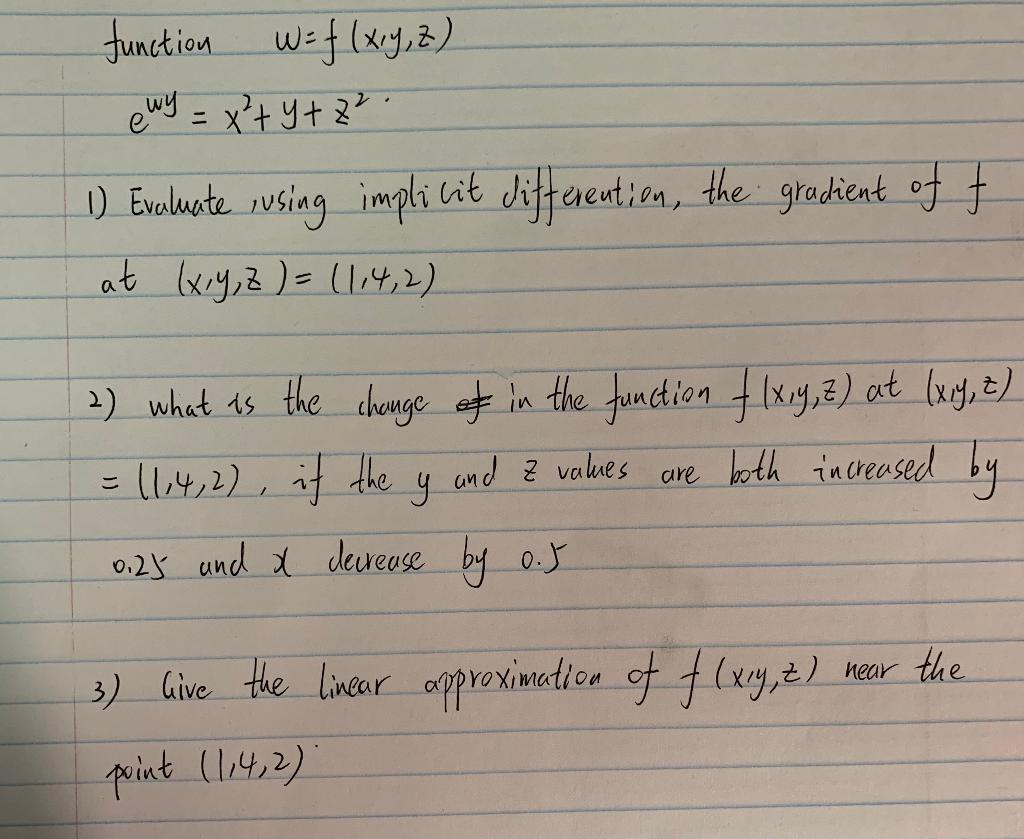 function w=f(x,y,z)
e^{wy} = x²+y+z².
1) Evaluate, using implicit differention, the gradient of f
at (x,y,z)=(1,4,2)
2) what is the change in the function f(x,y,z) at (x,y,z)
=(1,4,2), if the y and z values are both increased by
0.25 and x decrease by 0.5
3) Give the linear approximation of f(x,y,z) near the
point (1,4,2)